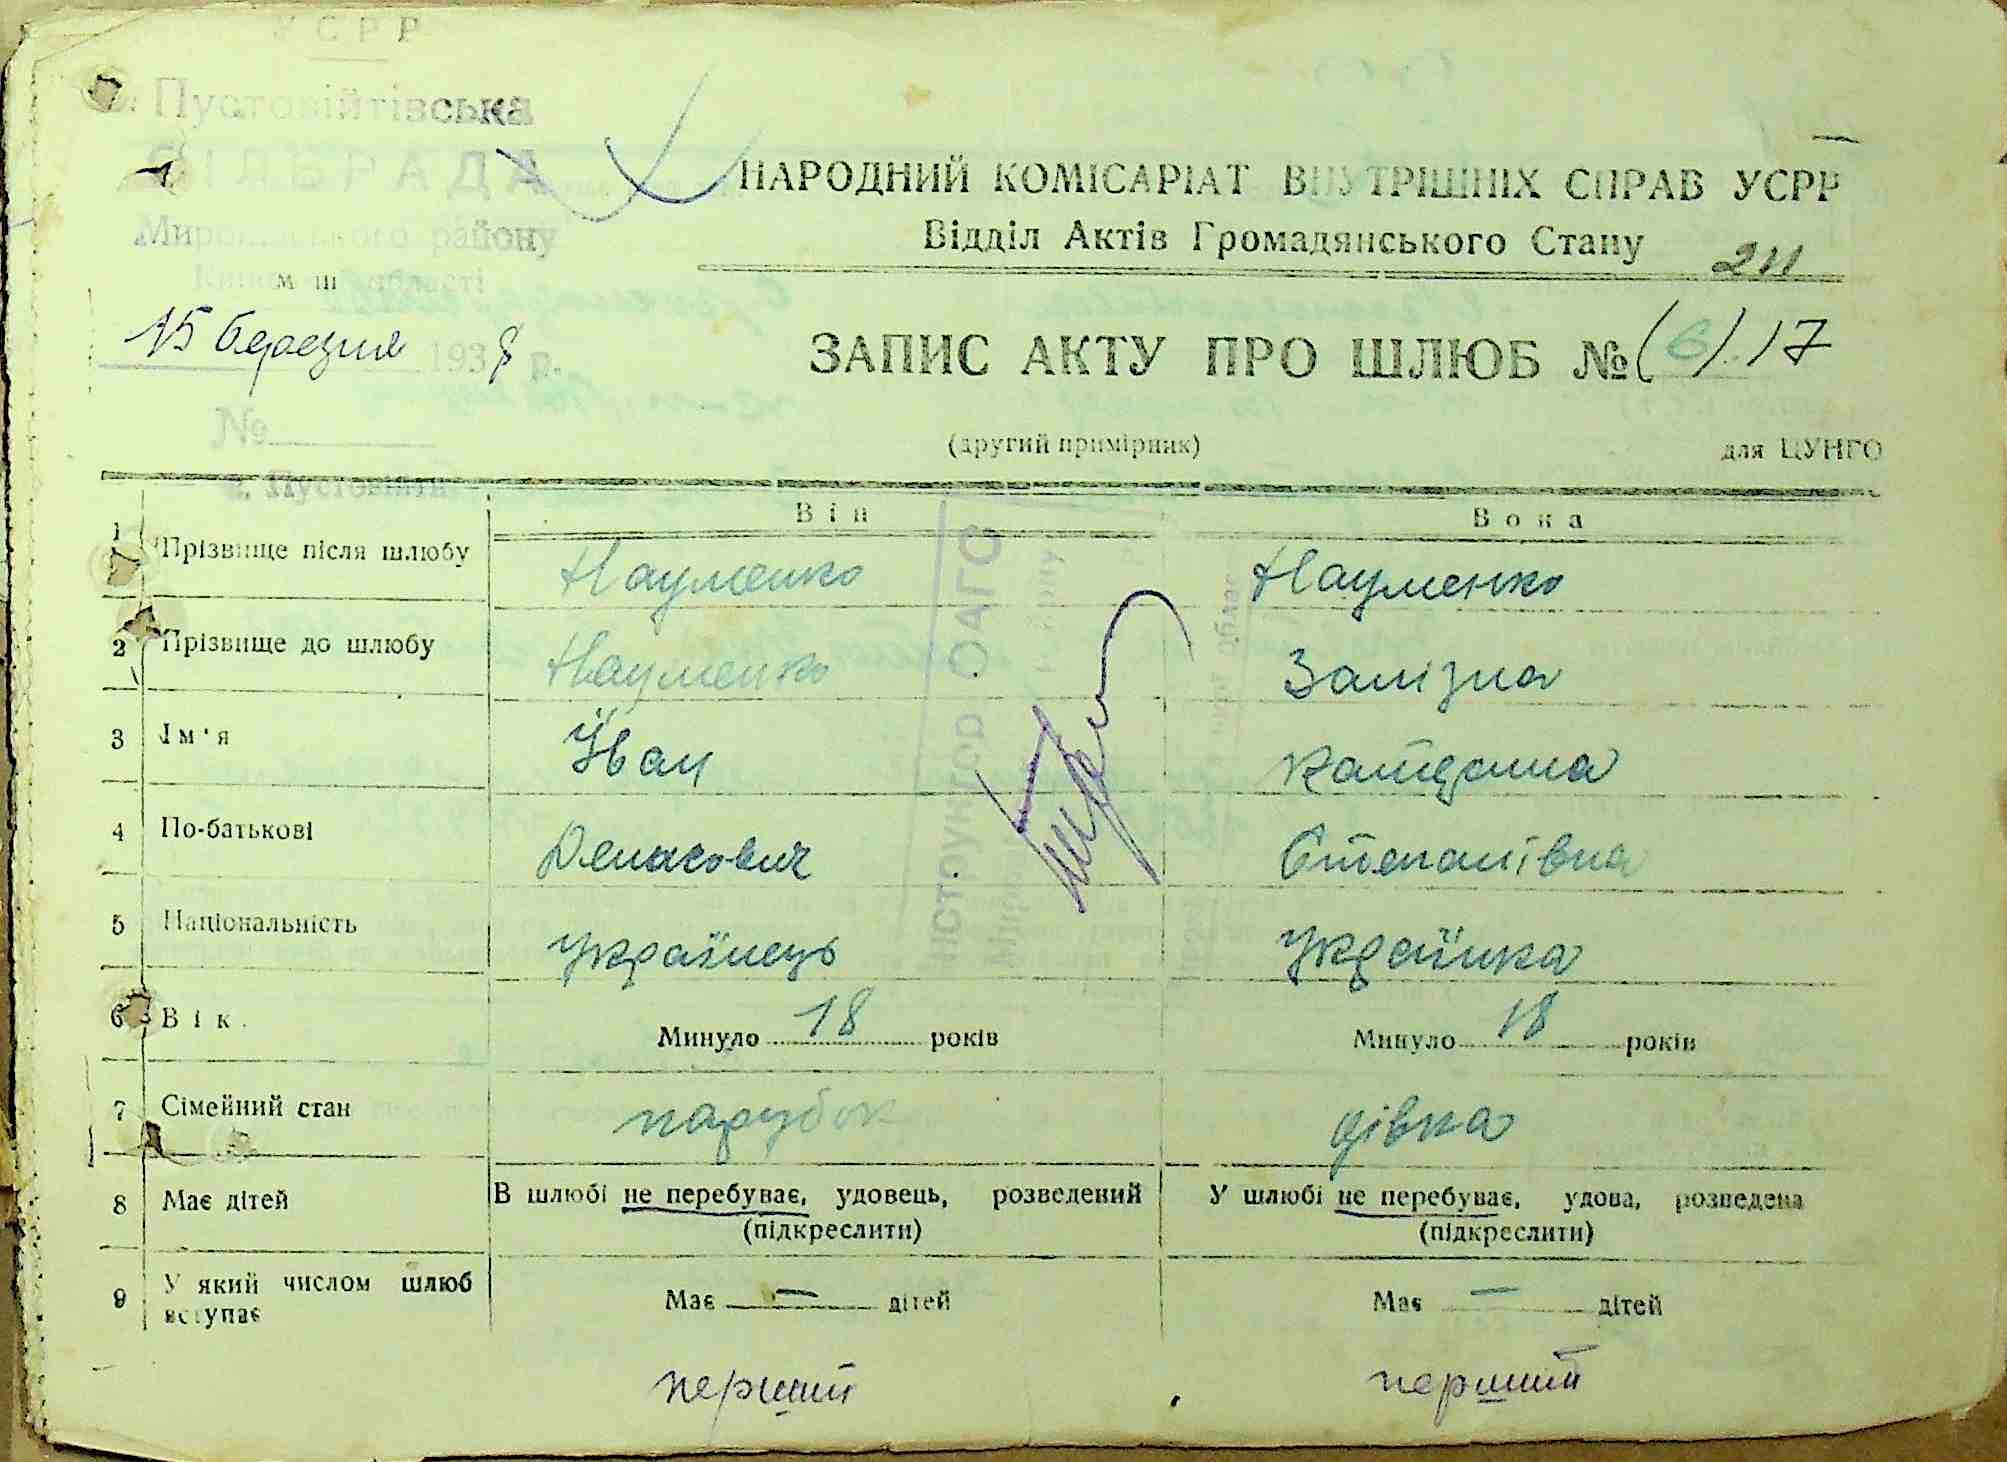 УСРР
Пустовійтівська
СІЛЬРАДА
Миронівського району
Київської області
15 березня 1938 р.
№
с. Пустовійти
НАРОДНИЙ КОМІСАРІАТ ВНУТРІШНІХ СПРАВ УСРР
Відділ Актів Громадянського Стану
211
ЗАПИС АКТУ ПРО ШЛЮБ № (6) 17
(другий примірник) для ЦУНГО
Він Вона
1 Прізвище після шлюбу Науменко Науменко
2 Прізвище до шлюбу Науменко Залізна
3 Ім'я Іван Катерина
4 По-батькові Панасович Степанівна
5 Національність Українець Українка
6 Вік. Минуло 18 років Минуло 18 років
7 Сімейний стан парубок дівка
8 Має дітей В шлюбі не перебуває, удовець, розведений У шлюбі не перебуває, удова, розведена
(підкреслити) (підкреслити)
9 У який числом шлюб вступає Має — дітей Має — дітей
перший перший
Інструктор ОАГС